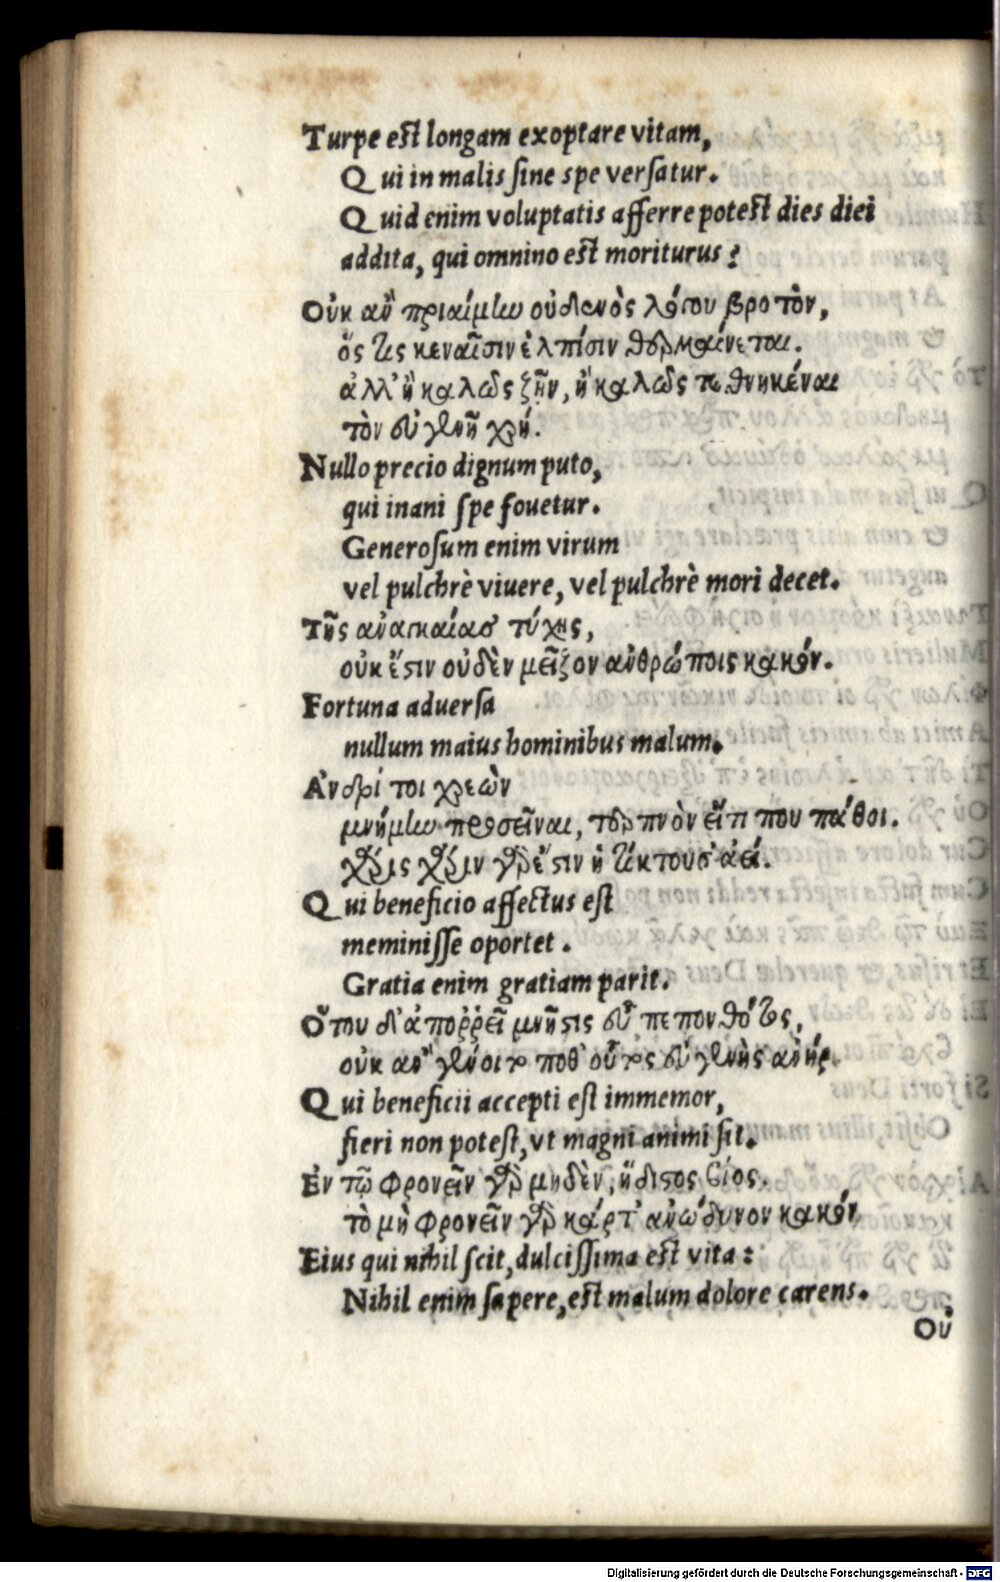 Turpe est longam exoptare vitam,
Qui in malis sine spe versatur.
Quid enim voluptatis afferre potest dies diei
addita, qui omnino est moriturus?
Οὐκ ἂν πριαίμην οὐδενὸς λόγου βροτὸν,
ὅς τις κεναῖσιν ἐλπίσιν θερμαίνεται.
ἀλλ' ἢ καλῶς ζῆν, ἢ καλῶς τεθνηκέναι
τὸν εὐγενῆ χρή.
Nullo precio dignum puto,
qui inani spe fovetur.
Generosum enim virum
vel pulchrè viuere, vel pulchrè mori decet.
Τῆς ἀναγκαίας τύχης,
οὐκ ἔστιν οὐδὲν μεῖζον ἀνθρώποις κακόν.
Fortuna aduersa
nullum maius hominibus malum.
Ἀνδρί τοι χρεὼν
μνήμην προσεῖναι, τερπνὸν εἴ τι που πάθοι.
χάρις χάριν γάρ ἐστιν ἡ τίκτουσ' ἀεί.
Qui beneficio affectus est
meminisse oportet.
Gratia enim gratiam parit.
Ὅτου δ' ἀπορρεῖ μνῆστις εὖ πεπονθότος,
οὐκ ἂν γένοιτο ποθ' οὗτος εὐγενὴς ἀνήρ.
Qui beneficii accepti est immemor,
fieri non potest, vt magni animi sit.
Ἐν τῷ φρονεῖν γὰρ μηδὲν, ἥδιστος βίος.
τὸ μὴ φρονεῖν γὰρ κάρτ' ἀνώδυνον κακόν.
Eius qui nihil scit, dulcissima est vita:
Nihil enim sapere, est malum dolore carens.
Οὐ
Digitalisierung gefördert durch die Deutsche Forschungsgemeinschaft - DFG